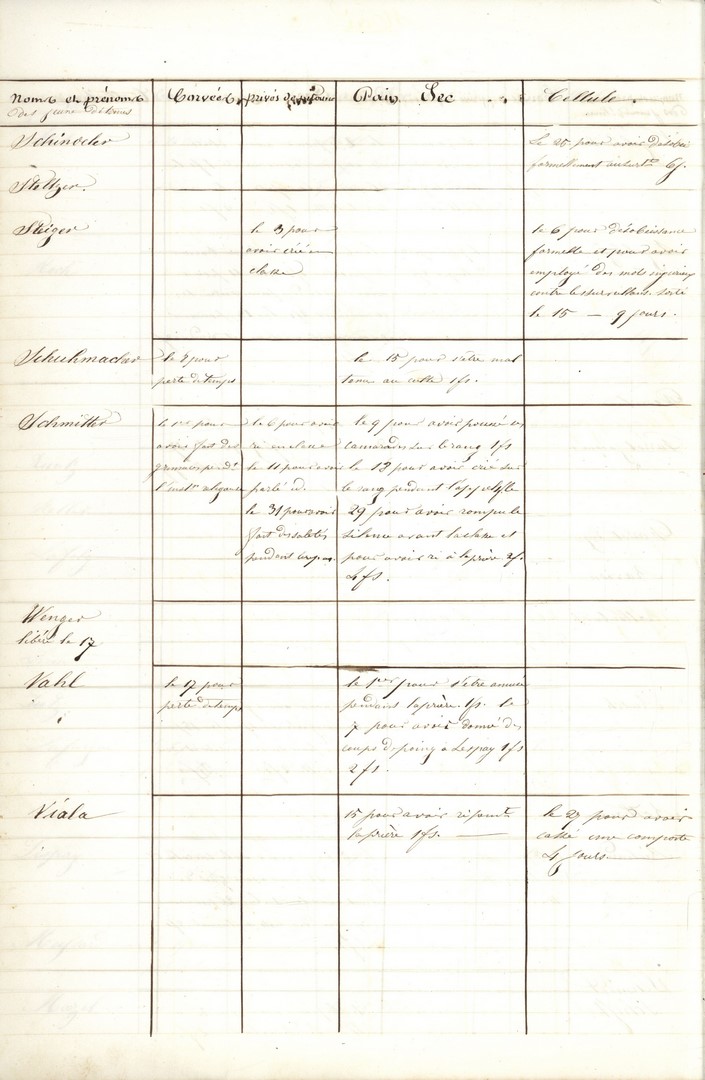 Noms et prénoms
des jeunes détenus
Corvées
privés de
Pain Sec
Cellule.
Schindler
Le 25 pour avoir désobéi
formellement 6j.
Steltzer.
Steiger
le 3 pour
avoir crié en
classe
le 6 pour désobéissance
formelle et pour avoir
employé des mots injurieux
contre les surveillants. sorti
le 15 — 9 jours.
Schuhmacher
le 2 pour
perte de temps
le 15 pour s'être mal
tenu au culte 1 fs.
Schmitter
le 1er pour
avoir fait des
grimaces pendt
l'inston religieuse
le 6 pour avoir
ri en classe
le 11 pour avoir
parlé id.
le 31 pour avoir
fait des saletés
pendant
le 9 pour avoir poussé ses
camarades sur le rang 1 fs
le 13 pour avoir crié sur
le rang pendant l'appel 1 fs le
29 pour avoir rompu le
silence avant la classe et
pour avoir ri à la prière 2 fs.
4 fs.
Wenger
libéré le 17
Vahl
le 17 pour
perte de temps
le 1er pour s'être amusé
pendant la prière. 1 fs. le
7 pour avoir donné des
coups de poing à Lespay 1 fs
2 fs.
Viala
15 pour avoir ri pendt
la prière 1 fs. —
le 27 pour avoir
cassé une
4 jours —